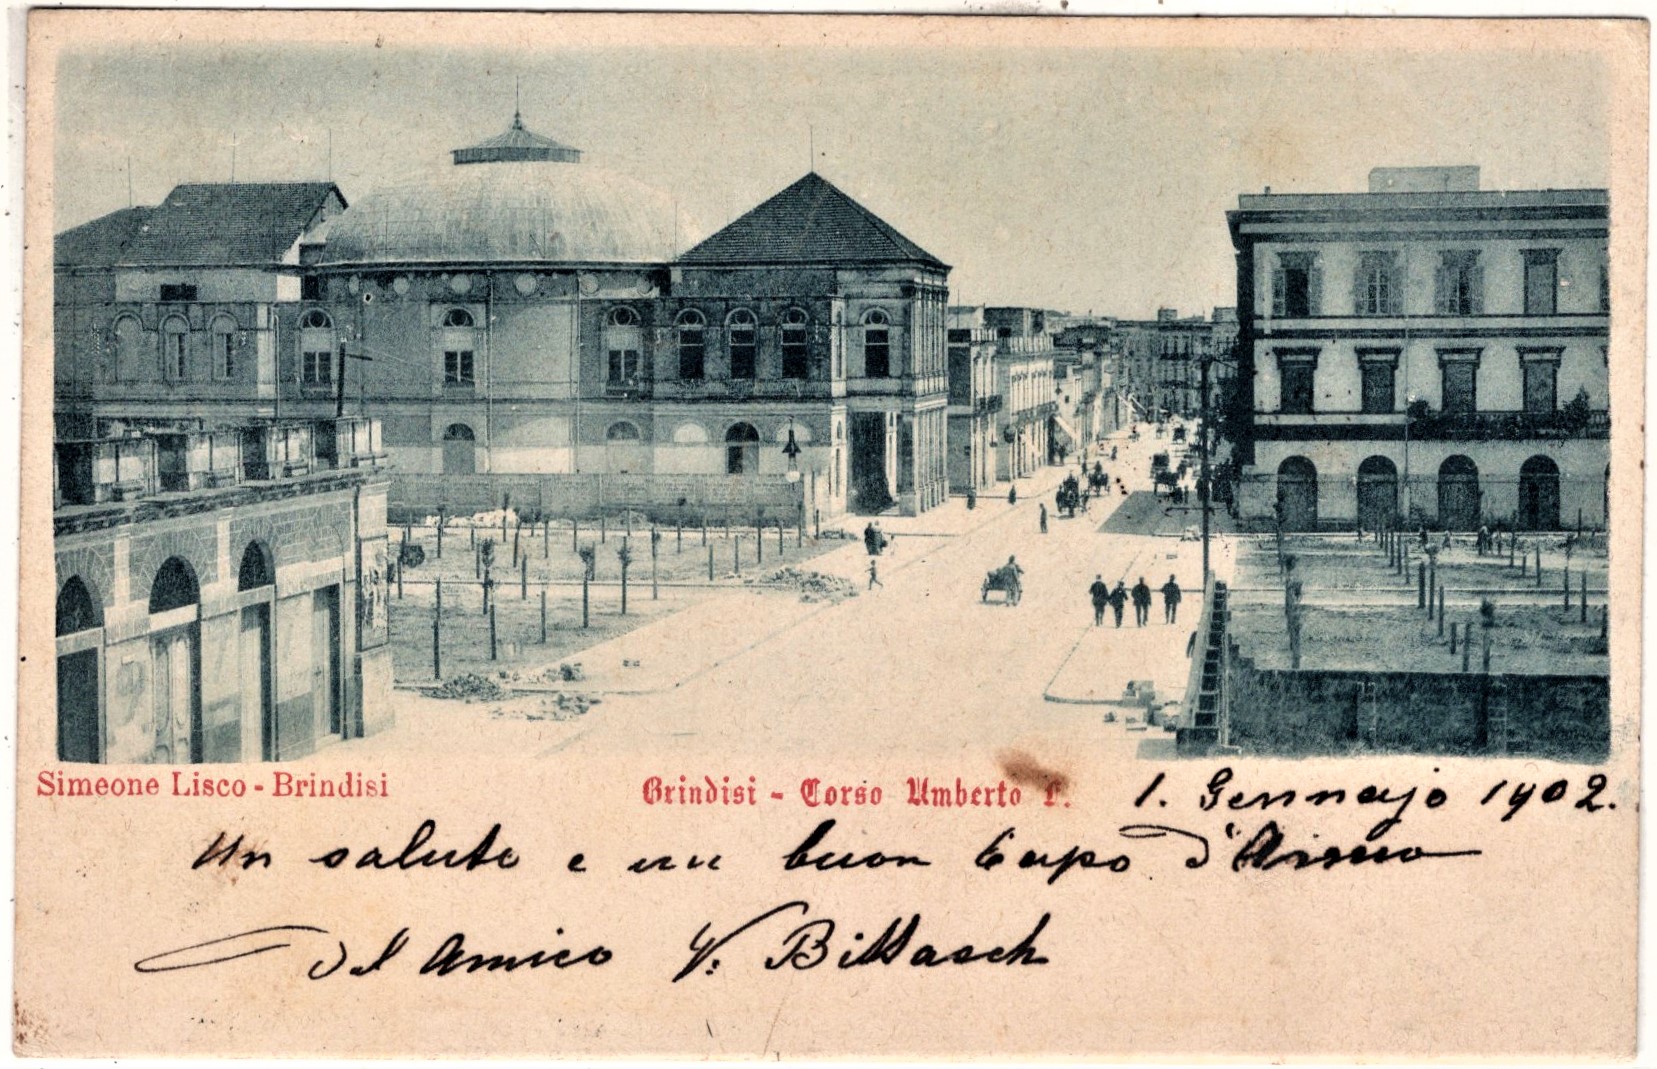 Simeone Lisco - Brindisi
Brindisi - Corso Umberto I.
1. Gennajo 1902.
Un saluto e un buon Capo d'Anno
Del Amico V.